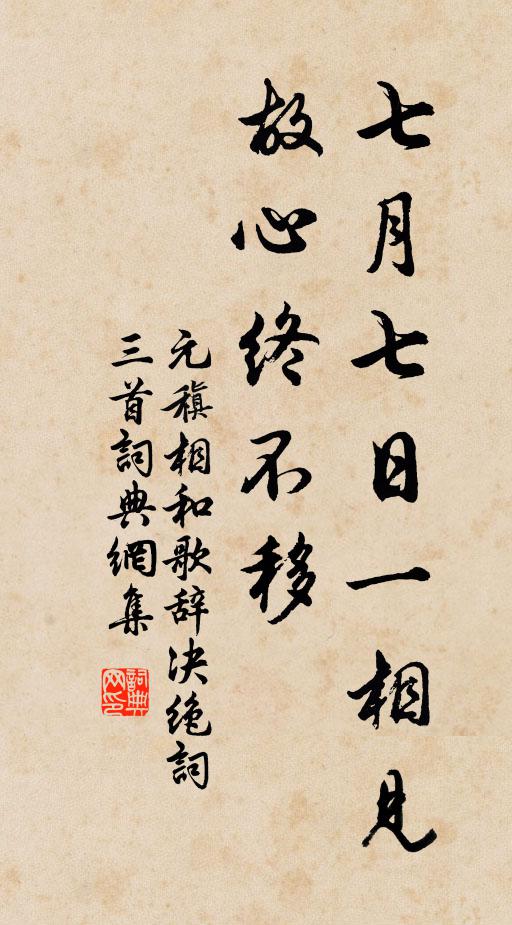 七月七日一相見
故心終不移
元稹相和歌辞决绝詞
三首詞典網集
詞典
网印